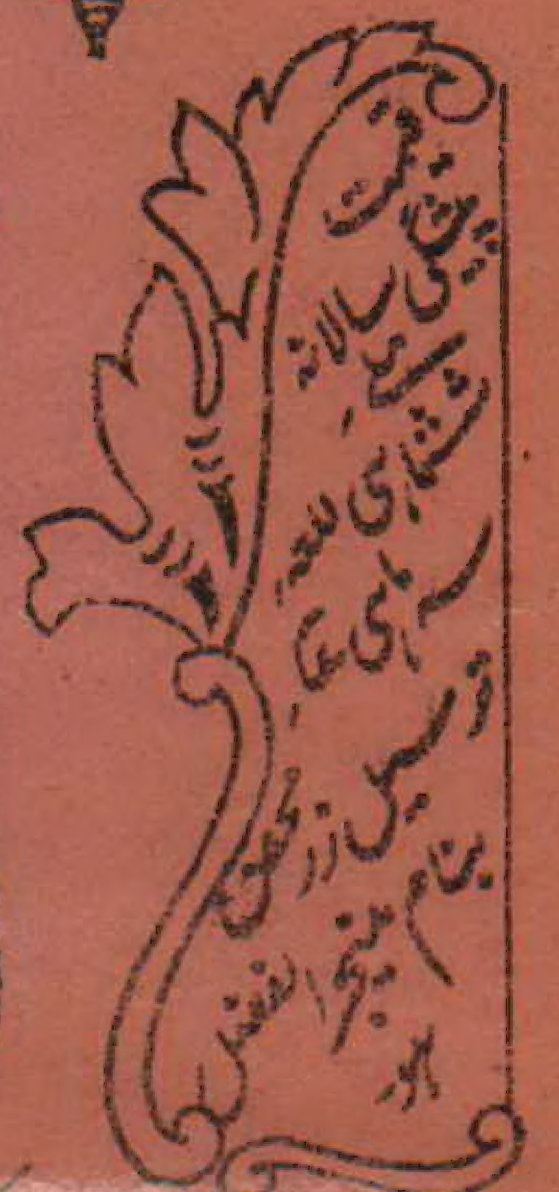 قیمت
پیشگی سالانہ
ششماہی للعہ
سہ ماہی
ترسیل زر محض
بنام منیجر الفضل
ہو